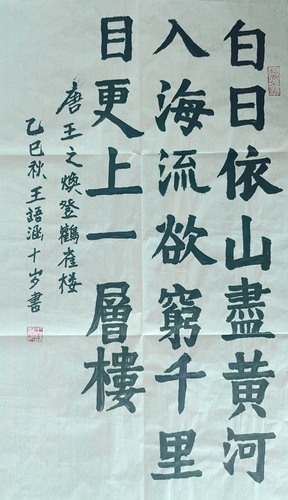 白日依山盡黄河
入海流欲窮千里
目更上一層樓
唐王之焕登鶴雀楼
乙巳秋王語涵十岁書